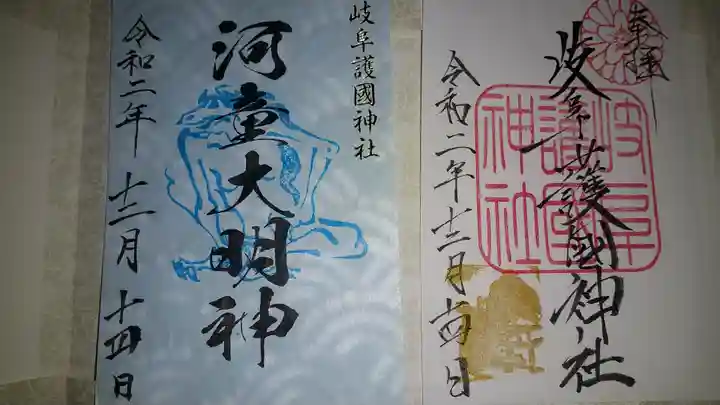 奉拝
岐阜護國神社
岐阜護國神社
令和二年十二月十四日
岐阜護國神社
河童大明神
令和二年十二月十四日